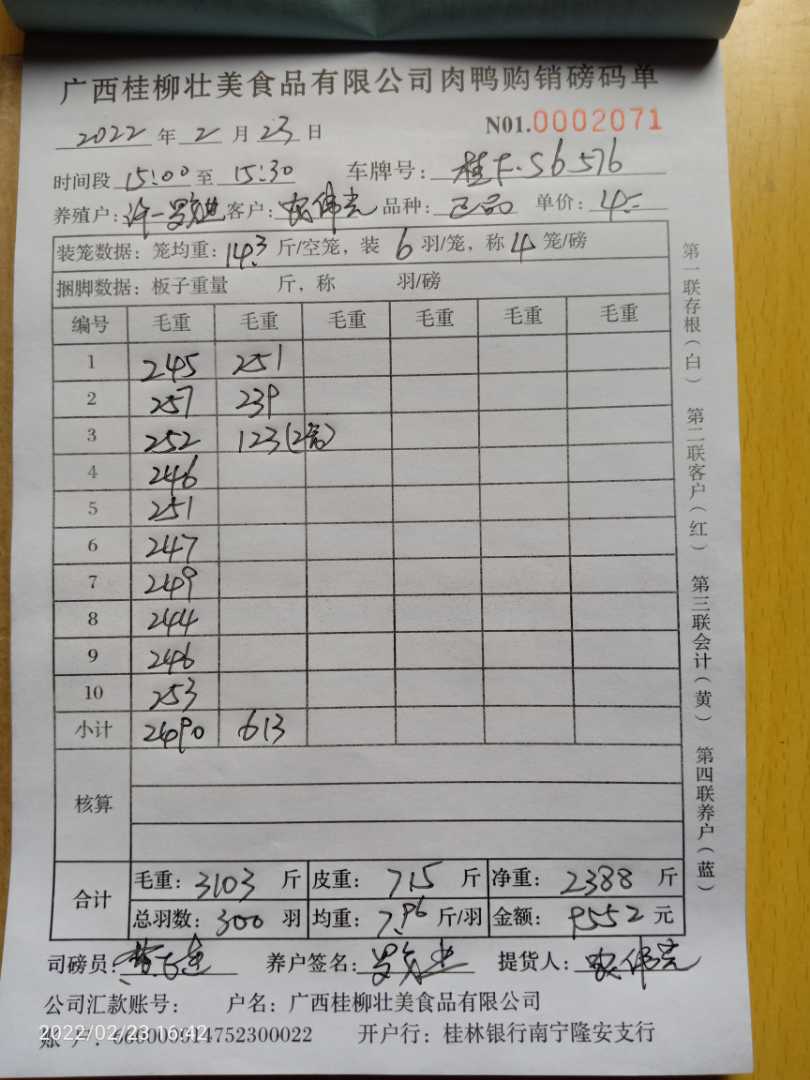 广西桂柳壮美食品有限公司肉鸭购销磅码单
2022 年 2 月 23 日 N01.0002071
时间段 15:00 至 15:30 车牌号: 桂F·S6576
养殖户: 许一 客户: 农伟 品种: 正品 单价: 4
装笼数据: 笼均重: 14.3 斤/空笼, 装 6 羽/笼, 称 4 笼/磅
捆脚数据: 板子重量 斤, 称 羽/磅
编号 毛重 毛重 毛重 毛重 毛重 毛重
1 245 251
2 257 239
3 252 123(2笼)
4 246
5 251
6 247
7 249
8 244
9 246
10 253
小计 2490 613
核算
合计
毛重: 3103 斤 皮重: 715 斤 净重: 2388 斤
总羽数: 300 羽 均重: 7.96 斤/羽 金额: 9552 元
司磅员: 养户签名: 提货人: 农伟
公司汇款账号: 户名: 广西桂柳壮美食品有限公司
账 户: 开户行: 桂林银行南宁隆安支行
2022/02/23 16:42
第一联存根(白) 第二联客户(红) 第三联会计(黄) 第四联养户(蓝)